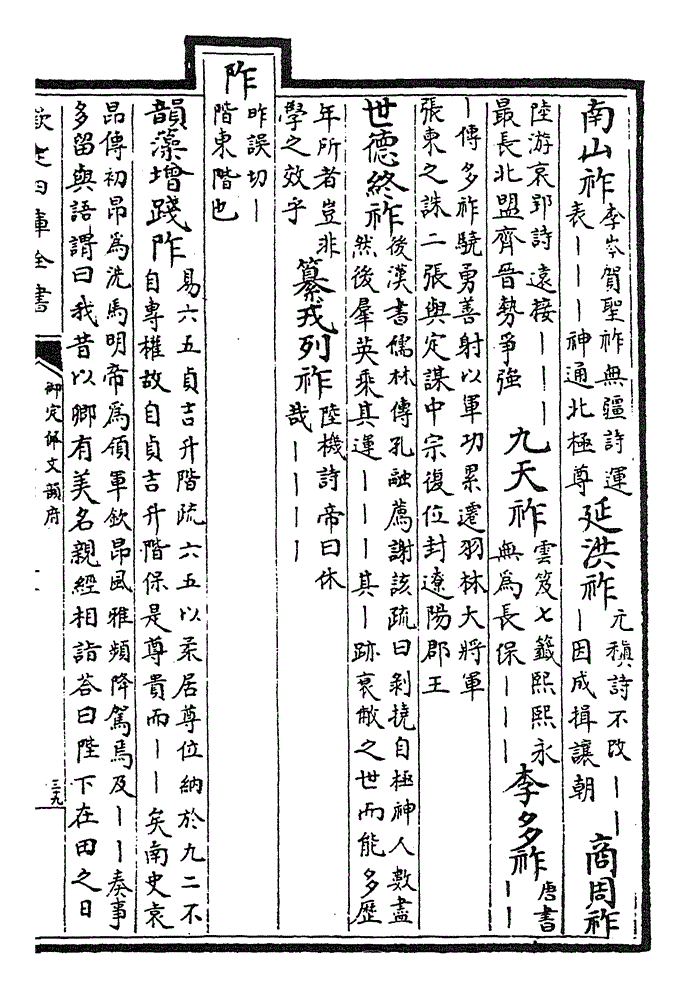 南山祚李岑賀聖祚無疆詩運
表｜｜｜神通北極尊延洪祚元稹詩不改｜｜
｜因成揖讓朝商周祚
陸游哀郢詩遠接｜｜｜
最長北盟齊晉勢爭強九天祚雲笈七籤熙熙永
無為長保｜｜｜李多祚唐書｜｜
｜傳多祚驍勇善射以軍功累遷羽林大將軍
張柬之誅二張與定謀中宗復位封遼陽郡王
世德終祚後漢書儒林傳孔融薦謝該疏曰剥撓自極神人數盡
然後羣英乘其運｜｜｜其｜跡衰敝之世而能多歷
年所者豈非
學之效乎纂戎列祚陸機詩帝曰休
哉｜｜｜｜
阼昨誤切｜
階東階也
韻藻增踐阼易六五貞吉升階疏六五以柔居尊位納於九二不
自專權故自貞吉升階保是尊貴而｜｜矣南史袁
昂傳初昂為洗馬明帝為領軍欽昂風雅頻降駕焉及｜｜奏事
多留與語謂曰我昔以卿有美名親經相詣答曰陛下在田之日
欽定四庫全書
御定佩文韻府
三九